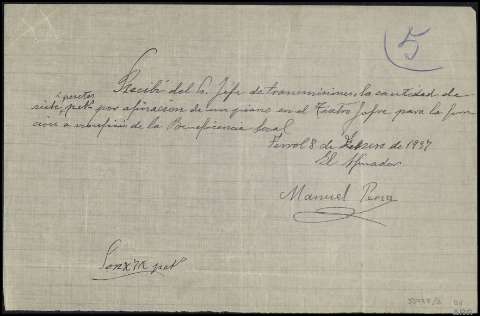 5
Recibí del C. Jefe de transmisiones, la cantidad de
siete pesetas ptas por afinacion de un piano en el Teatro Jofre para la fun
cion a beneficio de la Beneficencia local
Ferrol 8 de Febrero de 1937
El Afinador
Manuel
Son